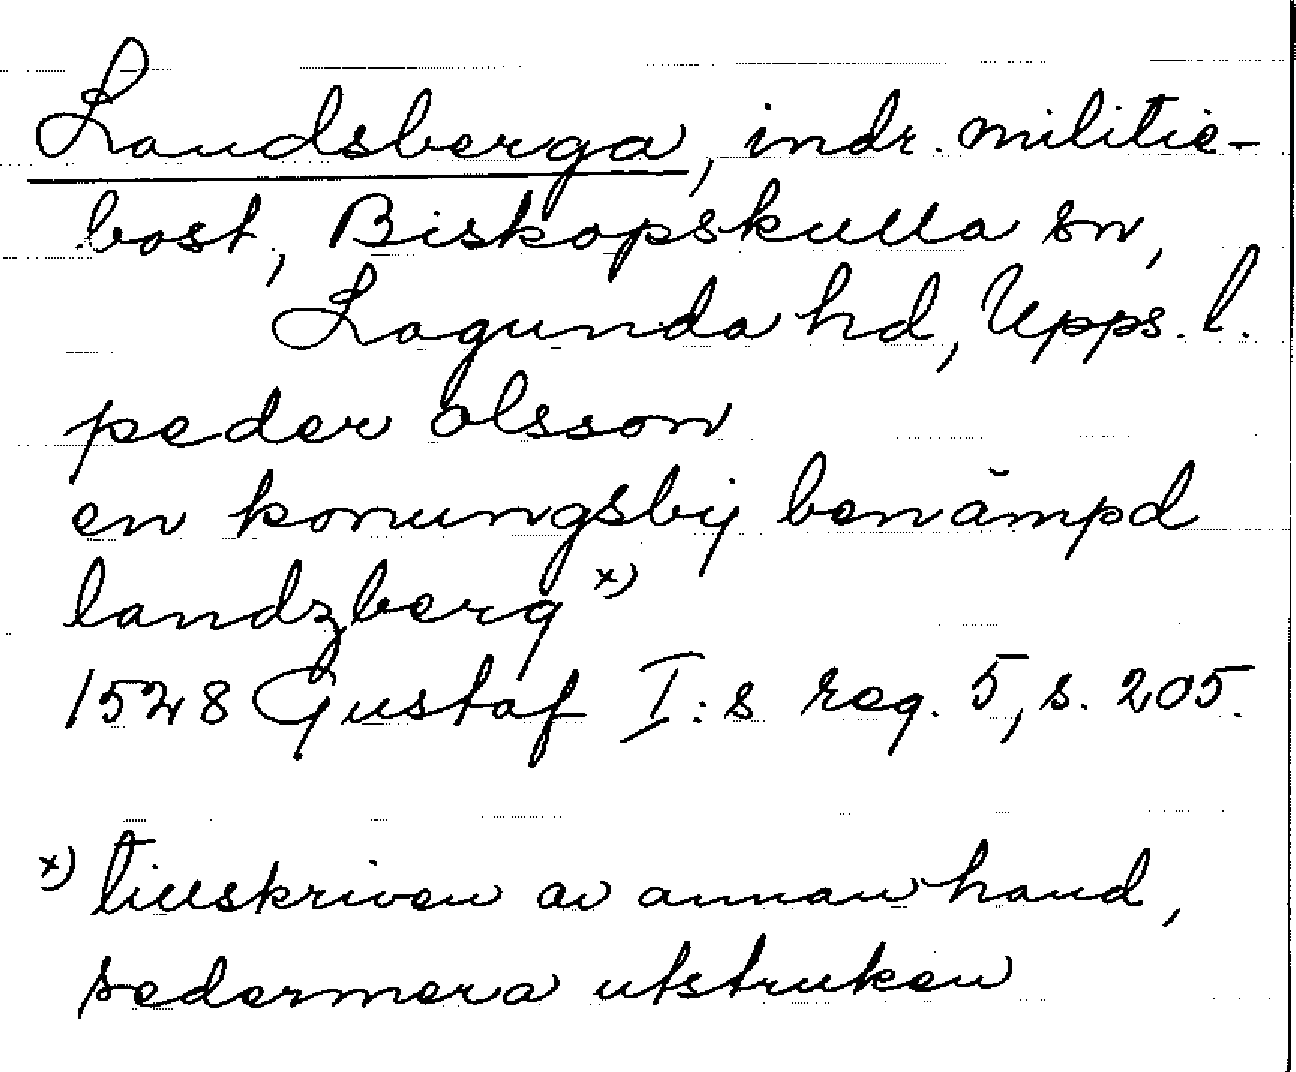 Landsberga, indr. militie-
bost, Biskopskulla sn,
Lagunda hd, Upps. l.
peder olsson
en konungsbÿ benämpd
landzberg x)
1528 Gustaf I:s reg. 5, s. 205.
x) tillskriven av annan hand,
sedermera utstruken